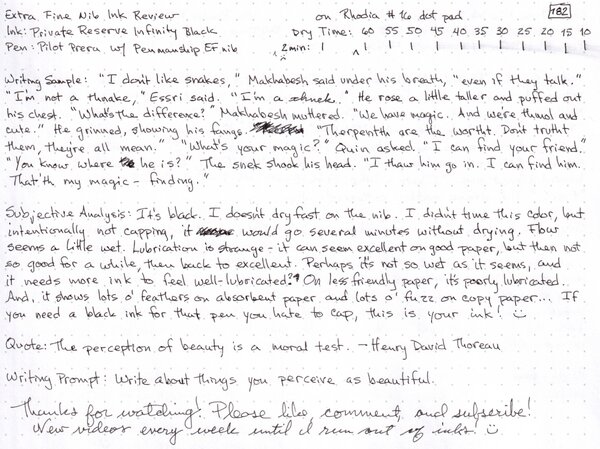 Extra Fine Nib Ink Review on Rhodia #16 dot pad 182
Ink: Private Reserve Infinity Black Dry Time: 60 55 50 45 40 35 30 25 20 15 10
Pen: Pilot Prera w/ Penmanship EF nib 2min:
Writing Sample: "I don't like snakes," Makhabesh said under his breath, "even if they talk."
"I'm not a thnake," Essri said. "I'm a shnek." He rose a little taller and puffed out
his chest. "What's the difference?" Makhabesh muttered. "We have magic. And we're thmol and
cute." He grinned, showing his fangs. "Therpenth are the wortht. Don't trutht
them, they're all mean." "What's your magic?" Quin asked. "I can find your friend."
"You know where he is?" The snek shook his head. "I thaw him go in. I can find him.
That'th my magic - finding."
Subjective Analysis: It's black. I doesn't dry fast on the nib. I didn't time this color, but
intentionally not capping, it would go several minutes without drying. Flow
seems a little wet. Lubrication is strange - it can seem excellent on good paper, but then not
so good for a while, then back to excellent. Perhaps it's not so wet as it seems, and
it needs more ink to feel well-lubricated? On less friendly paper, it's poorly lubricated.
And, it shows lots o' feathers on absorbent paper and lots o' fuzz on copy paper... If
you need a black ink for that pen you hate to cap, this is your ink! :)
Quote: The perception of beauty is a moral test. - Henry David Thoreau
Writing Prompt: Write about things you perceive as beautiful.
Thanks for watching! Please like, comment, and subscribe!
New videos every week until I run out of inks! :)